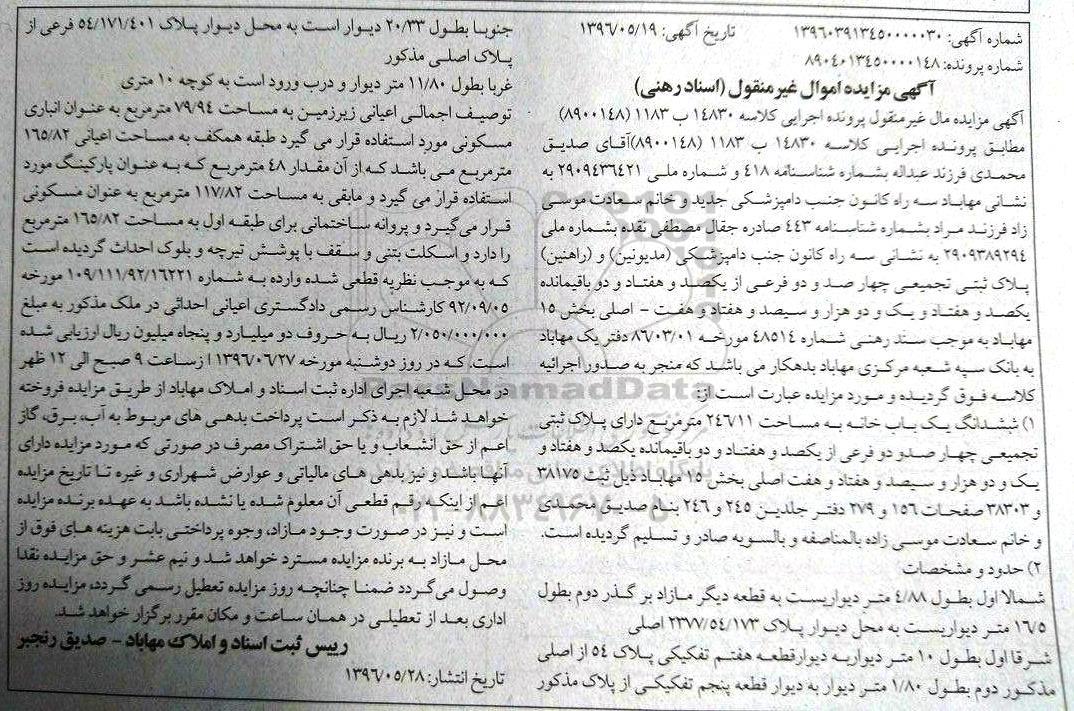 شماره آگهی: ۱۳۹۶۰۳۹۱۳۴۵۰۰۰۰۰۳۰ تاریخ آگهی: ۱۳۹۶/۰۵/۱۹
شماره پرونده: ۸۹۰۴۰۱۳۴۵۰۰۰۰۱۴۸
آگهی مزایده اموال غیرمنقول (اسناد رهنی)
آگهی مزایده مال غیرمنقول پرونده اجرایی کلاسه ۱۴۸۳۰ ب ۱۱۸۳ (۸۹۰۰۱۴۸)
مطابق پرونده اجرایی کلاسه ۱۴۸۳۰ ب ۱۱۸۳ (۸۹۰۰۱۴۸)آقای صدیق
محمدی فرزند عبداله بشماره شناسنامه ۴۱۸ و شماره ملی ۲۹۰۹۴۳۶۴۲۱ به
نشانی مهاباد سه راه کانون جنب دامپزشکی جدید و خانم سعادت موسی
زاد فرزند مراد بشماره شناسنامه ۴۴۳ صادره جفال مصطفی نقده بشماره ملی
۲۹۰۹۳۸۹۲۹۴ به نشانی سه راه کانون جنب دامپزشکی (مدیونین) و (راهنین)
پلاک ثبتی تجمیعی چهار صد و دو فرعی از یکصد و هفتاد و دو باقیمانده
یکصد و هفتاد و یک و دو هزار و سیصد و هفتاد و هفت - اصلی بخش ۱۵
مهاباد به موجب سند رهنی شماره ۴۸۵۱۴ مورخه ۸۶/۰۳/۰۱ دفتر یک مهاباد
به بانک سپه شعبه مرکزی مهاباد بدهکار می باشد که منجر به صدور اجرائیه
کلاسه فوق گردیده و مورد مزایده عبارت است از:
۱) ششدانگ یک باب خانه به مساحت ۲۴۶/۱۱ مترمربع دارای پلاک ثبتی
تجمیعی چهار صدو دو فرعی از یکصد و هفتاد و دو باقیمانده یکصد و هفتاد و
یک و دو هزار و سیصد و هفتاد و هفت اصلی بخش ۱۵ مهاباد ذیل ثبت ۳۸۱۷۵
و ۳۸۳۰۳ صفحات ۱۵۶ و ۲۷۹ دفتر جلدین ۲۴۵ و ۲۴۶ بنام صدیق محمدی
و خانم سعادت موسی زاده بالمناصفه و بالسویه صادر و تسلیم گردیده است.
۲) حدود و مشخصات
شمالا اول بطول ۴/۸۸ متر دیواریست به قطعه دیگر مازاد بر گذر دوم بطول
۱۶/۵ متر دیواریست به محل دیوار پلاک ۲۳۷۷/۵۴/۱۷۳ اصلی
شرقا اول بطول ۱۰ متر دیواربه دیوارقطعه هفتم تفکیکی پلاک ۵۴ از اصلی
مذکور دوم بطول ۱/۸۰ متر دیوار به دیوار قطعه پنجم تفکیکی از پلاک مذکور
جنوبا بطول ۲۰/۳۳ دیوار است به محل دیوار پلاک ۵۴/۱۷۱/۴۰۱ فرعی از
پلاک اصلی مذکور
غربا بطول ۱۱/۸۰ متر دیوار و درب ورود است به کوچه ۱۰ متری
توصیف اجمالی اعیانی زیرزمین به مساحت ۷۹/۹۴ مترمربع به عنوان انباری
مسکونی مورد استفاده قرار می گیرد طبقه همکف به مساحت اعیانی ۱۶۵/۸۲
مترمربع می باشد که از آن مقدار ۴۸ مترمربع که به عنوان پارکینگ مورد
استفاده قرار می گیرد و مابقی به مساحت ۱۱۷/۸۲ مترمربع به عنوان مسکونی
قرار می‌گیرد و پروانه ساختمانی برای طبقه اول به مساحت ۱۶۵/۸۲ مترمربع
را دارد و اسکلت بتنی و سقف با پوشش تیرچه و بلوک احداث گردیده است
که به موجب نظریه قطعی شده وارده به شماره ۱۰۹/۱۱۱/۹۲/۱۶۲۲۱ مورخه
۹۲/۰۹/۰۵ کارشناس رسمی دادگستری اعیانی احداثی در ملک مذکور به مبلغ
۲/۰۵۰/۰۰۰/۰۰۰ ریال به حروف دو میلیارد و پنجاه میلیون ریال ارزیابی شده
است. که در روز دوشنبه مورخه ۱۳۹۶/۰۶/۲۷ ازساعت ۹ صبح الی ۱۲ ظهر
در محل شعبه اجرای اداره ثبت اسناد و املاک مهاباد از طریق مزایده فروخته
خواهد شد لازم به ذکر است پرداخت بدهی های مربوط به آب، برق، گاز
اعم از حق انشعاب و یا حق اشتراک مصرف در صورتی که مورد مزایده دارای
آنها باشد و نیز بدهی های مالیاتی و عوارض شهراری و غیره تا تاریخ مزایده
اعم از اینکه رقم قطعی آن معلوم شده یا نشده باشد به عهده برنده مزایده
است و نیز در صورت وجود مازاد، وجوه پرداختی بابت هزینه های فوق از
محل مازاد به برنده مزایده مسترد خواهد شد و نیم عشر و حق مزایده نقدا
وصول می‌گردد ضمنا چنانچه روز مزایده تعطیل رسمی گردد، مزایده روز
اداری بعد از تعطیلی در همان ساعت و مکان مقرر برگزار خواهد شد.
رییس ثبت اسناد و املاک مهاباد - صدیق رنجبر
تاریخ انتشار: ۱۳۹۶/۰۵/۲۸
ParsNamadData